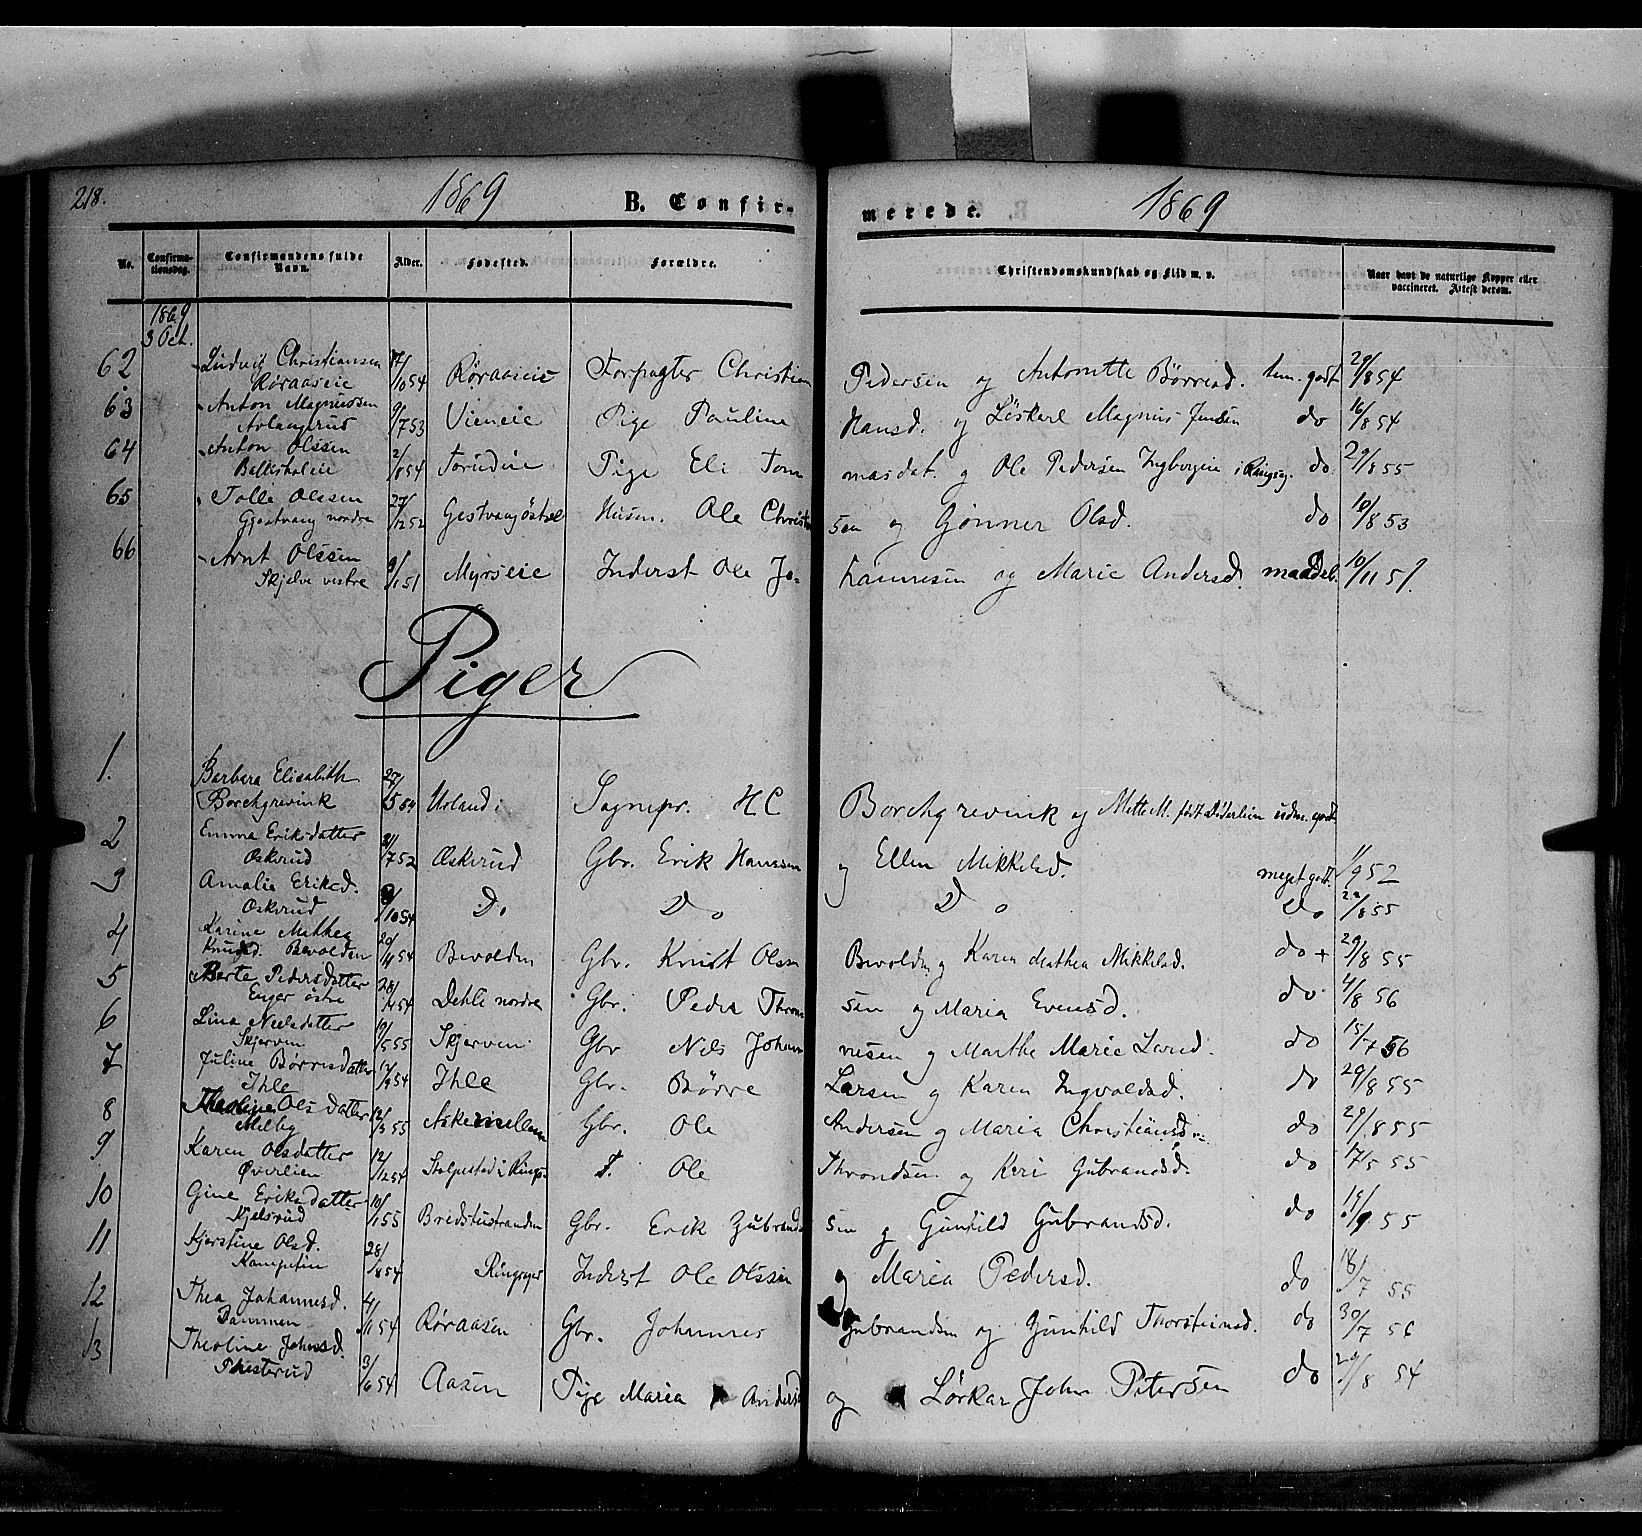 218.
1869
B. Confir-
merede.
1869
No.
Confirma-
tionsdag.
Confirmandens fulde
Navn.
Alder.
Fødested.
Forældre.
Christendomskundskab og Flid m. v.
Naar havt de naturlige Kopper eller
vaccineret. Attest derom.
1869
3 Oct.
62 Ludvig Christiansen 17/10 54 Røraaseie Forpagter Christian Pedersen og Antonette Børresd. tem. godt 29/8 54
Røraaseie
63 Anton Magnussen 9/7 53 Vieneie Pige Pauline Hansd. og Løskarl Magnus Jensen do 16/8 54
64 Anton Olssen 2/8 54 Pige Eli Tom masdat. og Ole Pedersen i Ringsag. do 29/8 55
65 Tolle Olssen 27/12 52 Husm. Ole Christen sen og Gønner Olsd. do 10/8 53
Gjestvang nordre
66 Arnt Olssen 9/1 51 Myrseie Inderst Ole Jo- hannesen og Marie Andersd. maadel. 10/11 59
Skjelve vestre
Piger
1. Barbara Elisabeth
Borchgrevink 27/5 54 Urland: Sognepr. H C Borchgrevink og Mette M. født Døderlein udm. godt
2 Emma Eriksdatter 31/7 52 Øskerud Gbr. Erik Hanssen og Ellen Mikkelsd. meget godt. 11/9 52
Øskerud
3 Amalia Eriksd. 8/10 54 Do Do Do do 29/8 55
Øskerud
4 Karine Mathea
Knudsd. Bevolden 20/11 54 Bevolden Gbr. Knut Olsen Bevolden og Karen Mathea Mikkelsd. do + 29/8 55
5 Berte Pedersdatter 28/4 54 Dehli nordre Gbr. Peder Thron sen og Maria Evensd. do 4/8 56
Enger østre
6 Lina Neelsdatter 19/5 55 Skjerven Gbr Nils Johan nesen og Marthe Marie Larsd. do 15/7 56
Skjerven
7 Juline Børresdatter 17/9 54 Ihle Gbr. Børre Larsen og Karen Ingvoldsd. do 29/8 55
Ihle
8 Theoline Olsdatter 12/3 55 Gbr. Ole Andersen og Maria Christiansd. do 29/8 55
Melby
9 Karen Olsdatter 12/12 54 Stolpestad i Rings. I. Ole Throndsen og Keri Gubrandsd. do 17/5 55
Øverlien
10 Gine Eriksdatter 10/1 55 Gbr. Erik Gubrands sen og Gunild Gubrandsd. do 19/9 55
Kjelsrud
11 Kjerstine Olsd. 28/8 54 Ringsager Inderst Ole Olssen og Maria Pedersd. do 18/7 55
12 Thea Johannesd. 4/11 54 Røraasen Gbr. Johannes Gubrandsen og Gunhild Thorsteinsd. do 30/7 56
Dammen
13 Theoline Johnsd. 3/6 54 Aasen Pige Maria Andersd og Løskar John Petersen do 29/8 54
Thesterud